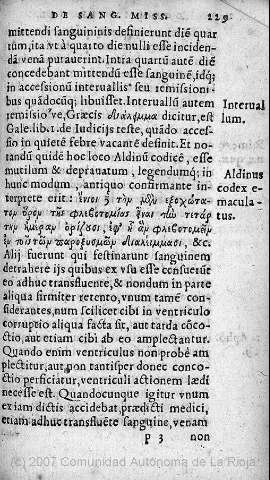 DE SANG. MISS. 229
mittendi sanguininis definierunt diẽ quar
tum, ita vt à quarto die nulli esse inciden
dã venã putauerint. Intra quartũ autẽ diẽ
concedebant mittendũ esse sanguinẽ, idq;
in accessionũ interuallis seu remissioni-
bus quãdocũq; libuisset. Interuallũ autem
remissio ve, Græcis διάλειμμα dicitur, est
Gale. lib. 1. de Iudicijs teste, quãdo acces-
sio in quietẽ febre vacantẽ definit. Et no-
tandũ quidẽ hoc loco Aldinũ codicẽ, esse
mutilum & deprauatum, legendumq; in
hunc modum, antiquo confirmante in-
terprete erit:
&c.
Alij fuerunt qui festinarunt sanguinem
detrahere ijs quibus ex vsu esse consuetũẽ
eo adhuc transfluente, & nondum in parte
aliqua firmiter retento, vnum tamẽ con-
siderantes, num scilicet cibi in ventriculo
corruptio aliqua facta sit, aut tarda cõco-
ctio, aut etiam cibi ab eo amplectantur.
Quando enim ventriculus non probè am
plectitur, aut non tantisper donec conco-
ctio perficiatur, ventriculi actionem lædi
necesse est. Quandocunque igitur vnum
ex iam dictis accidebat, prædicti medici,
etiam adhuc transfluẽte sanguine, venam
P 3 non
Interual
lum.
Aldinus
codex e-
macula-
tus.
(c) 2007 Comunidad Autónoma de La Rioja